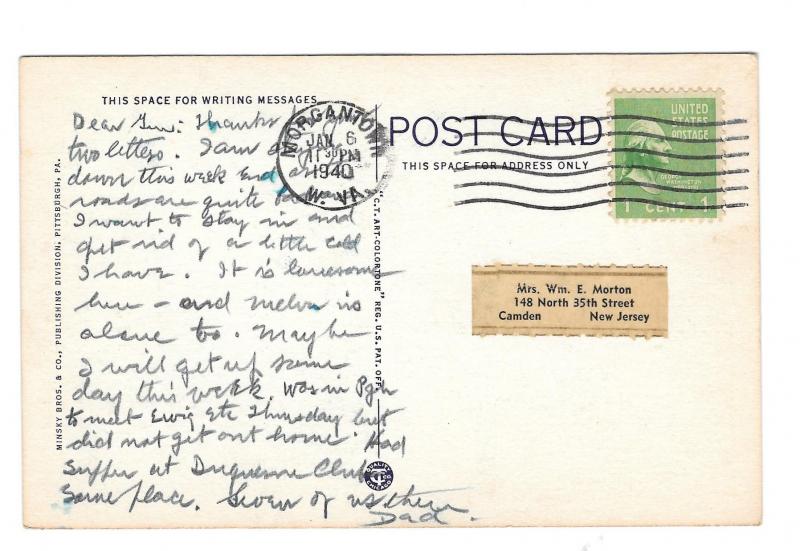 THIS SPACE FOR WRITING MESSAGES
Dear Gwn: Thanks for
two letters. I am
down this week end and
roads are quite
I want to stay in and
get rid of a little cold
I have. It is lonesome
here - and Melva is
alone too. Maybe
I will get up some
day this week. Was in Pgh
to meet Ewig Etc Thursday but
did not get out home. Had
supper at Duquesne Club
Same place. Seven of us there
Dad.
MINSKY BROS. & CO., PUBLISHING DIVISION, PITTSBURGH, PA.
"C.T. ART-COLORTONE" REG. U.S. PAT. OFF.
QUALITY
CT CO
CHICAGO
MORGANTOWN
JAN 6
11 30 PM
1940
W. VA.
POST CARD
THIS SPACE FOR ADDRESS ONLY
UNITED
STATES
POSTAGE
GEORGE
WASHINGTON
1 CENT 1
Mrs. Wm. E. Morton
148 North 35th Street
Camden New Jersey